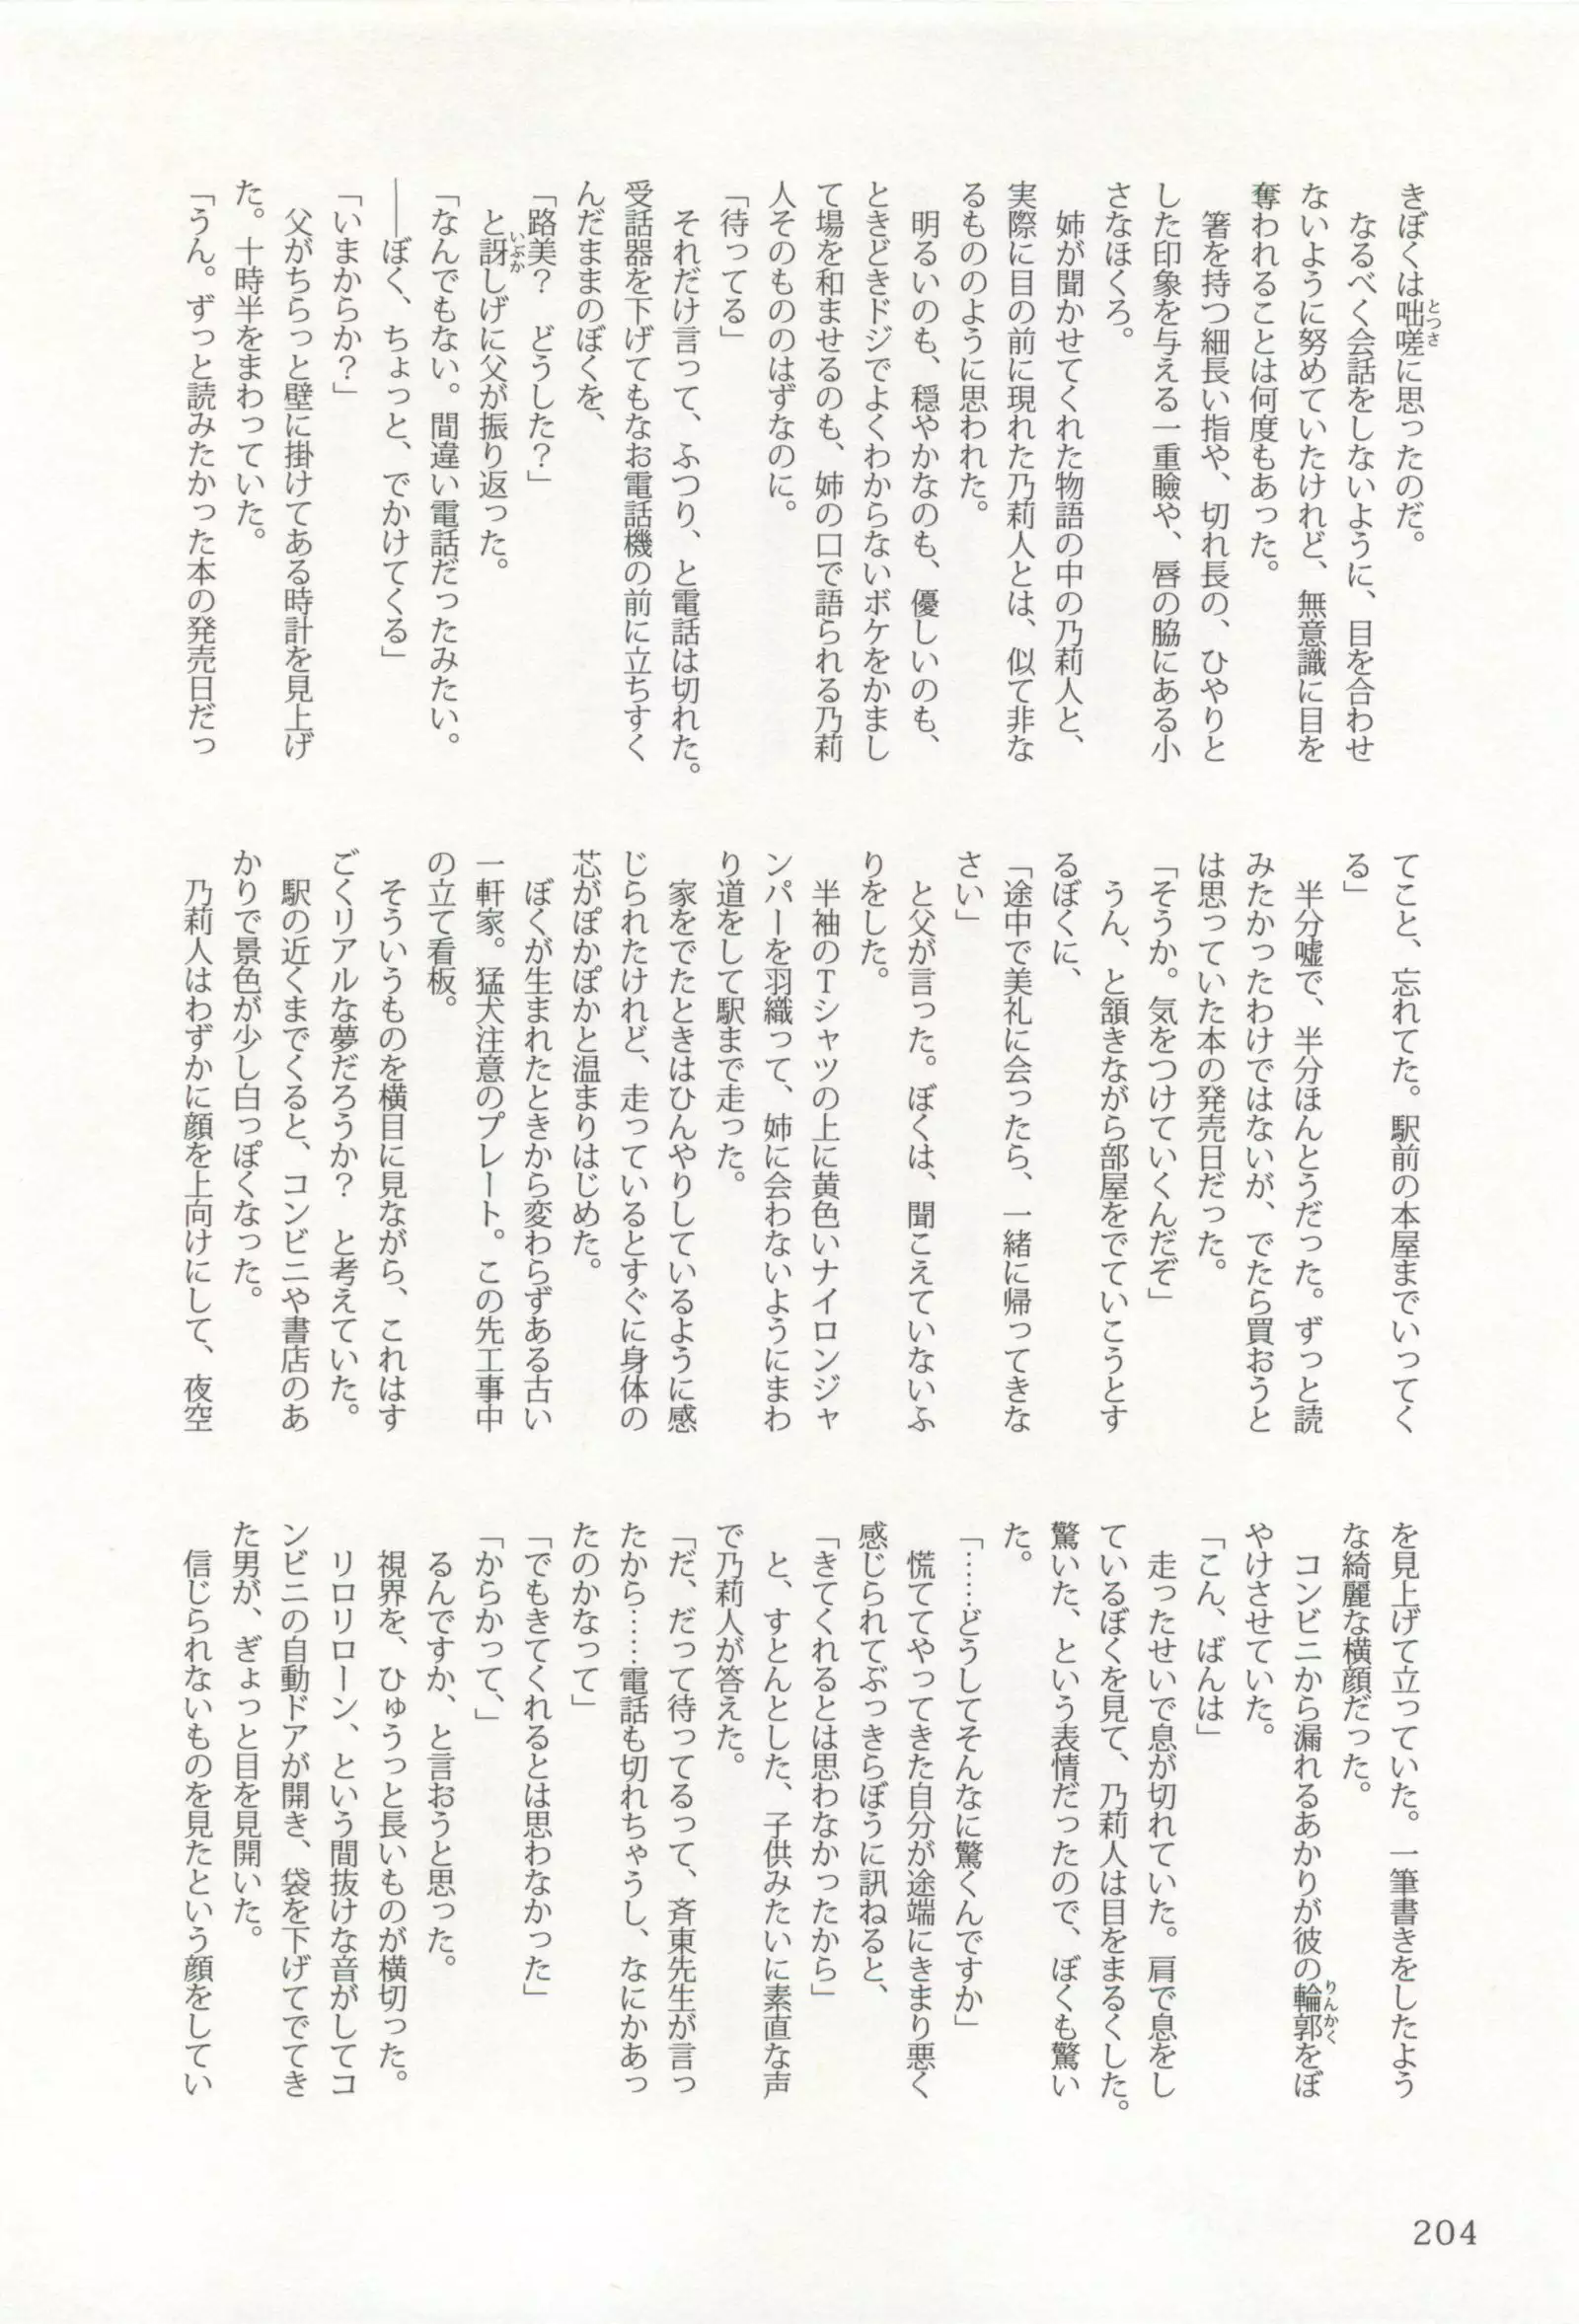 きぼくは咄嗟に思ったのだ。
なるべく会話をしないように、目を合わせ
ないように努めていたけれど、無意識に目を
奪われることは何度もあった。
箸を持つ細長い指や、切れ長の、ひやりと
した印象を与える一重瞼や、唇の脇にある小
さなほくろ。
姉が聞かせてくれた物語の中の乃莉人と、
実際に目の前に現れた乃莉人とは、似て非な
るもののように思われた。
明るいのも、穏やかなのも、優しいのも、
ときどきドジでよくわからないボケをかまし
て場を和ませるのも、姉の口で語られる乃莉
人そのもののはずなのに。
「待ってる」
それだけ言って、ふつり、と電話は切れた。
受話器を下げてもなお電話機の前に立ちすく
んだままのぼくを、
「路美？　どうした？」
と訝しげに父が振り返った。
「なんでもない。間違い電話だったみたい。
――ぼく、ちょっと、でかけてくる」
「いまからか？」
父がちらっと壁に掛けてある時計を見上げ
た。十時半をまわっていた。
「うん。ずっと読みたかった本の発売日だっ
てこと、忘れてた。駅前の本屋までいってく
る」
半分嘘で、半分ほんとうだった。ずっと読
みたかったわけではないが、でたら買おうと
は思っていた本の発売日だった。
「そうか。気をつけていくんだぞ」
うん、と頷きながら部屋をでていこうとす
るぼくに、
「途中で美礼に会ったら、一緒に帰ってきな
さい」
と父が言った。ぼくは、聞こえていないふ
りをした。
半袖のＴシャツの上に黄色いナイロンジャ
ンパーを羽織って、姉に会わないようにまわ
り道をして駅まで走った。
家をでたときはひんやりしているように感
じられたけれど、走っているとすぐに身体の
芯がぽかぽかと温まりはじめた。
ぼくが生まれたときから変わらずある古い
一軒家。猛犬注意のプレート。この先工事中
の立て看板。
そういうものを横目に見ながら、これはす
ごくリアルな夢だろうか？　と考えていた。
駅の近くまでくると、コンビニや書店のあ
かりで景色が少し白っぽくなった。
乃莉人はわずかに顔を上向けにして、夜空
を見上げて立っていた。一筆書きをしたよう
な綺麗な横顔だった。
コンビニから漏れるあかりが彼の輪郭をぼ
やけさせていた。
「こん、ばんは」
走ったせいで息が切れていた。肩で息をし
ているぼくを見て、乃莉人は目をまるくした。
驚いた、という表情だったので、ぼくも驚い
た。
「……どうしてそんなに驚くんですか」
慌ててやってきた自分が途端にきまり悪く
感じられてぶっきらぼうに訊ねると、
「きてくれるとは思わなかったから」
と、すとんとした、子供みたいに素直な声
で乃莉人が答えた。
「だ、だって待ってるって、斉東先生が言っ
たから……電話も切れちゃうし、なにかあっ
たのかなって」
「でもきてくれるとは思わなかった」
「からかって、」
るんですか、と言おうと思った。
視界を、ひゅうっと長いものが横切った。
リロリローン、という間抜けな音がしてコ
ンビニの自動ドアが開き、袋を下げてでてき
た男が、ぎょっと目を見開いた。
信じられないものを見たという顔をしてい
とつさ
いぶか
りんかく
204